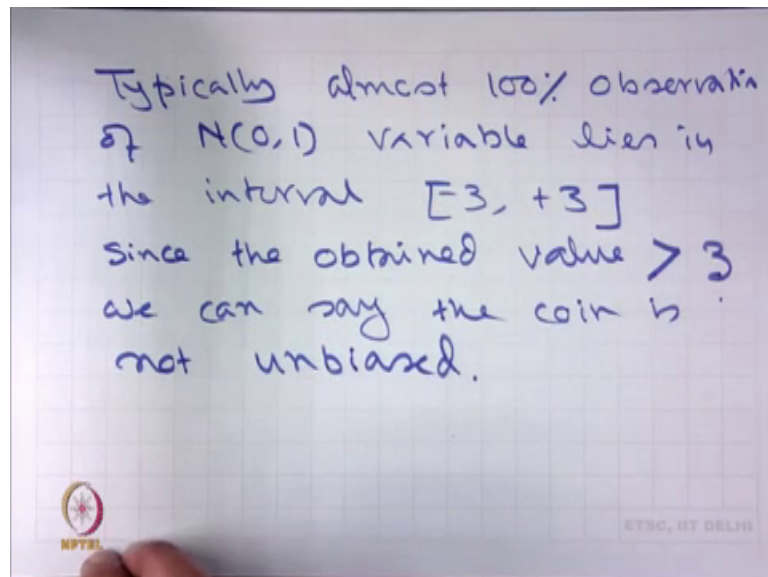 Typically almost 100% observatin
of N(0,1) variable lies in
the interval [-3, +3]
Since the obtained value > 3
we can say the coin is
not unbiased.
NPTEL
ETSC, IIT DELHI